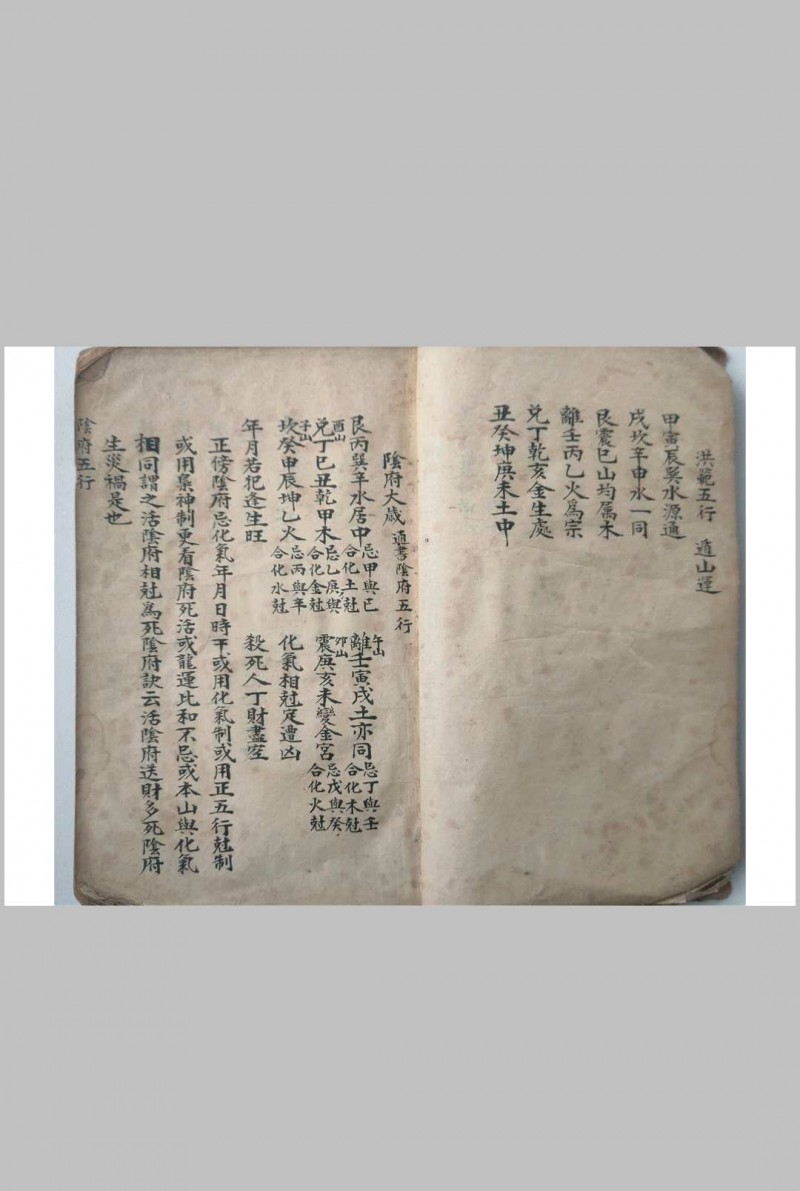 洪範五行　遁山運
甲寅辰巽水源通
戌坎辛申水一同
艮震巳山均属木
離壬丙乙火爲宗
兌丁乾亥金生處
丑癸坤庚未土中
陰府太歲　通書陰府五行
艮丙巽辛水居中　忌甲與已合化土尅　午山離壬寅戌土亦同　忌丁與壬合化木尅
酉山兌丁巳丑乾甲木　忌乙庚與合化金尅　卯山震庚亥未變金宮　忌戊與癸合化火尅
子山坎癸申辰坤乙火　忌丙與辛合化水尅　化氣相尅定遭凶
年月若犯逢生旺　殺死人丁財盡空
正傍陰府忌化氣年月日時干或用化氣制或用正五行尅制
或用梟神制更看陰府死活或龍運比和不忌或本山與化氣
相同謂之活陰府相尅爲死陰府訣云活陰府送財多死陰府
生災禍是也
陰府五行